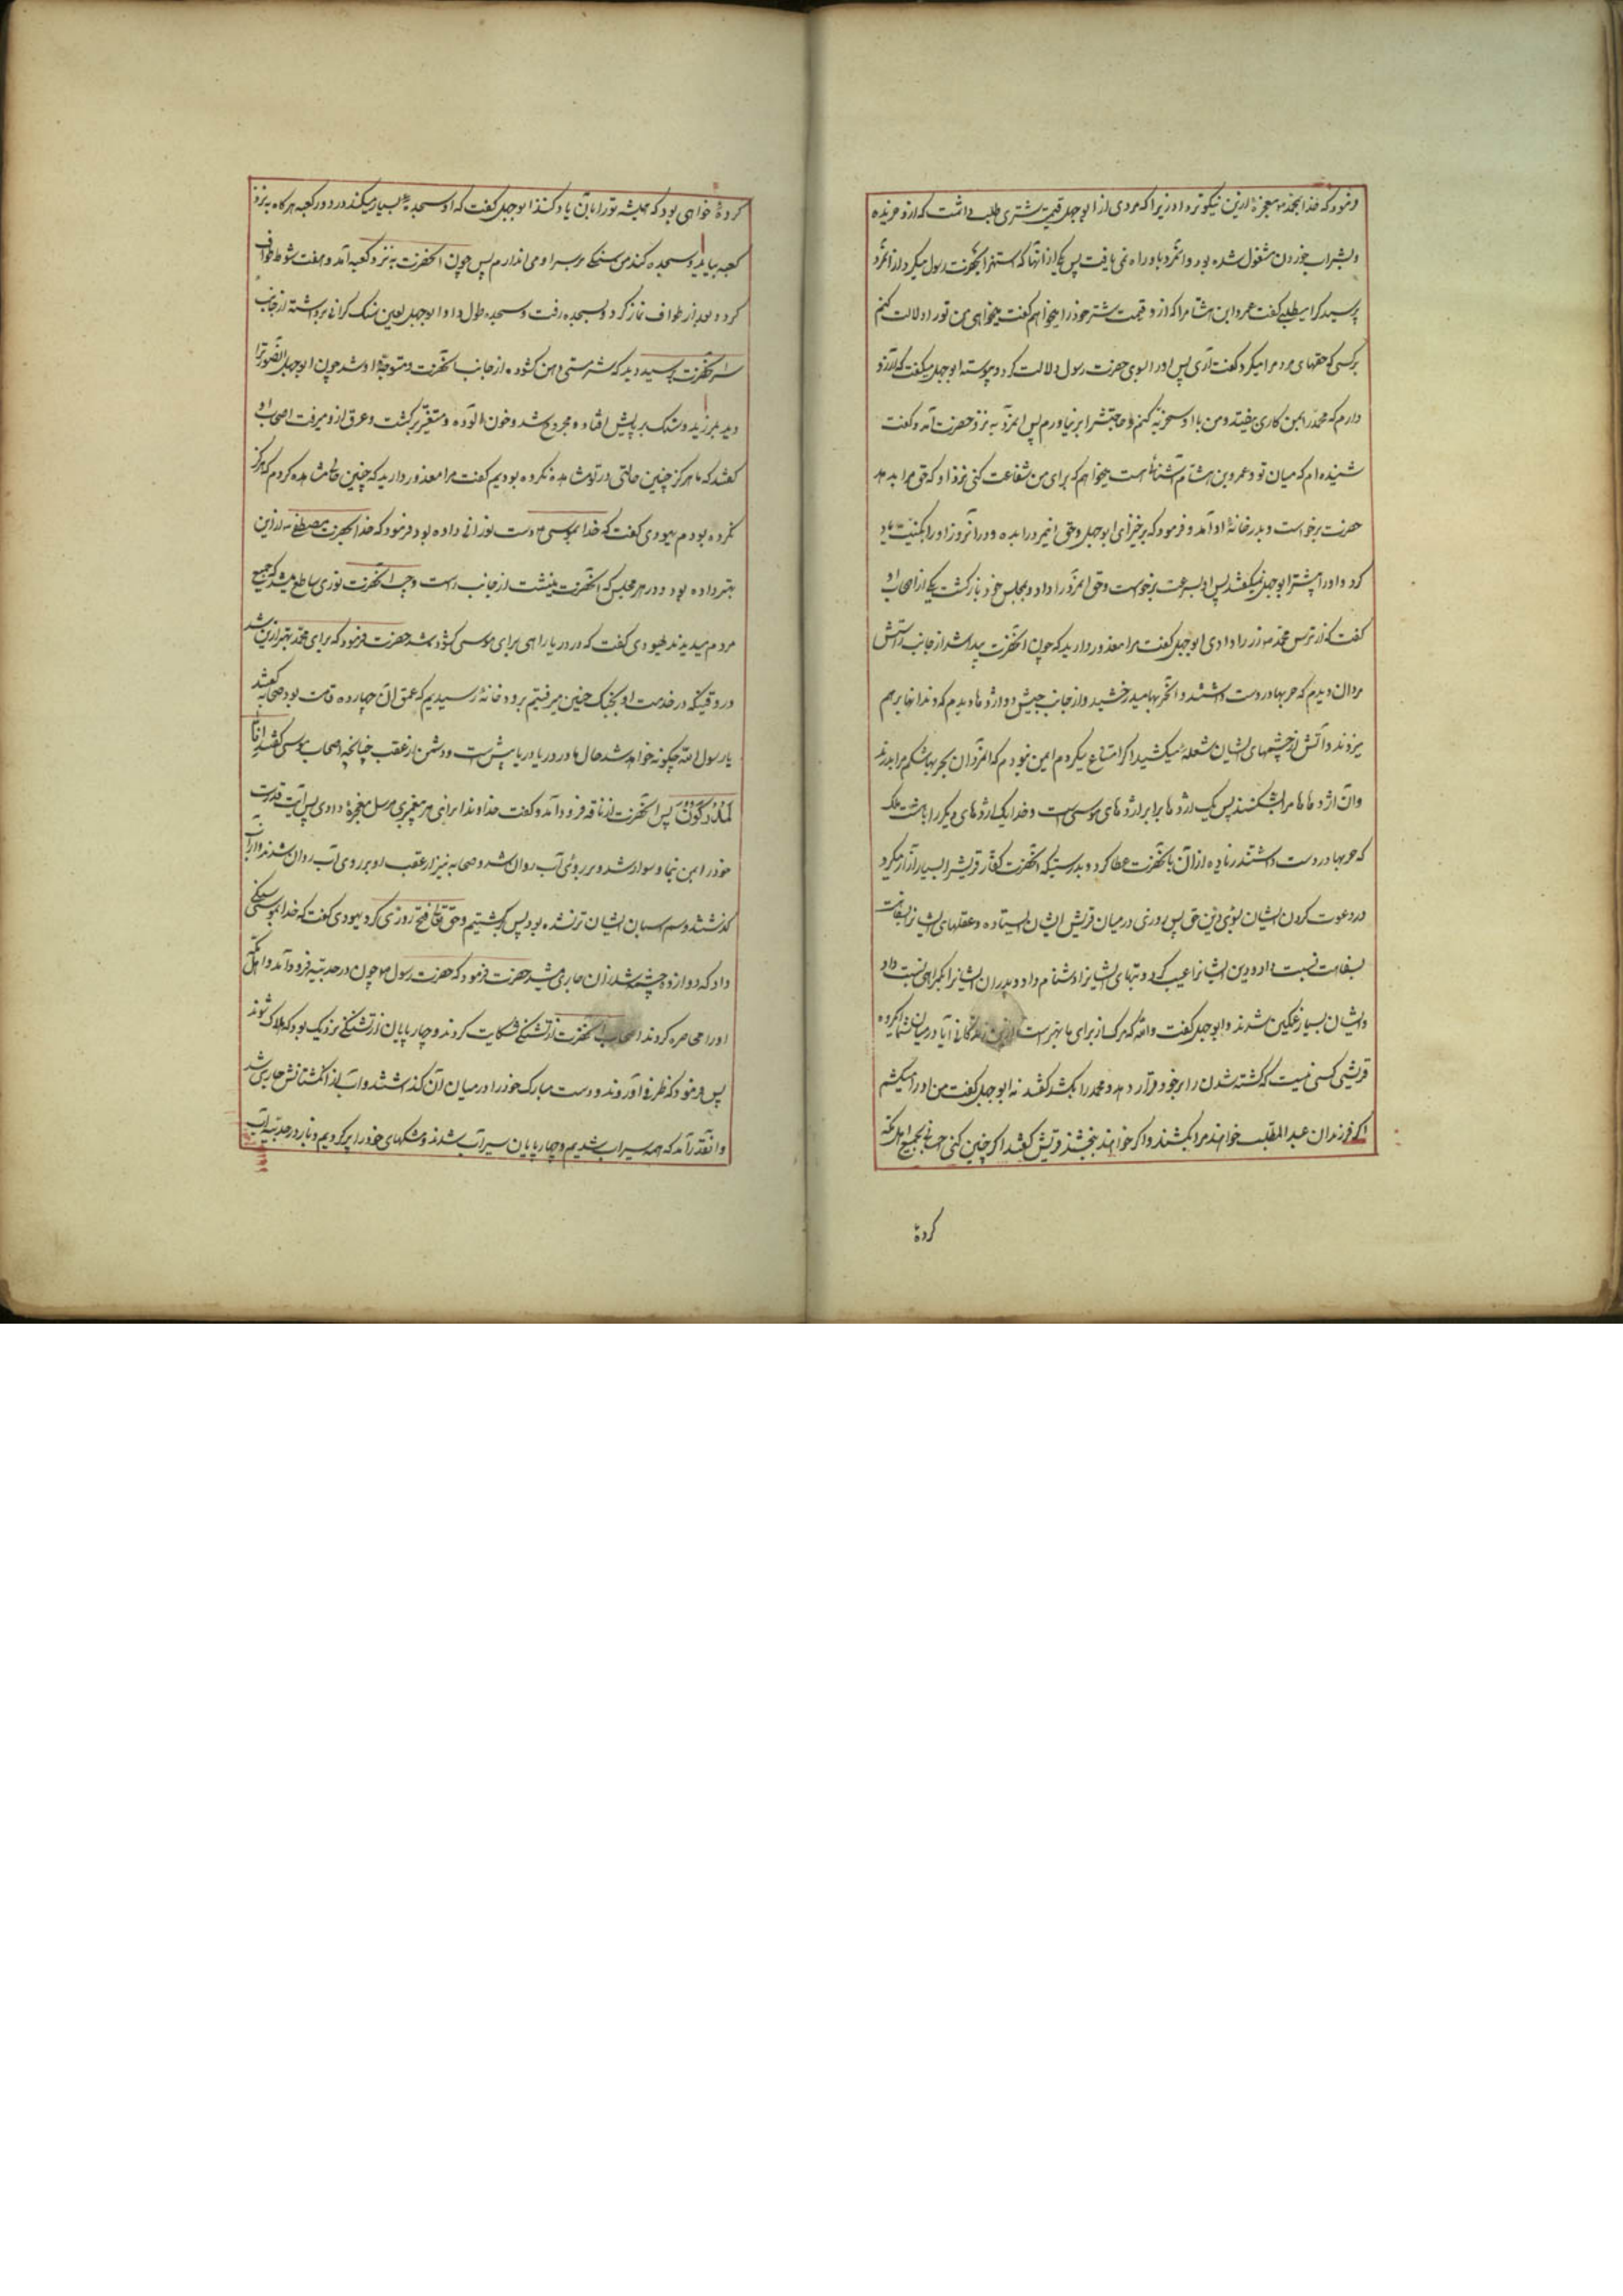 فرمود که خدا بمحمد ص معجزهٔ ازین نیکوتر داد زیرا که مردی از ابوجهل قیمت شتری طلب داشت که ازو خریده
و بشراب خوردن مشغول شده بود و انمرد باو راه نمی یافت پس یکی از انها که استهزا بحضرت رسول میکرد از انمرد
پرسید کرا میطلبی گفت عمرو ابن هشام را که ازو قیمت شتر خود را میخواهم گفت میخواهی من تورا دلالت کنم
بر کسی که حقهای مردم را میگیرد گفت آری پس اورا بسوی حضرت رسول دلالت کرد و پیوسته ابوجهل میگفت که آرزو
دارم که محمد را بمن کاری بیفتد و من با او سخریه کنم و حاجتش را بر نیاورم پس انمرد به نزد حضرت آمد و گفت
شنیده ام که میان تو و عمرو بن هشام آشنائی هست میخواهم که برای من شفاعت کنی نزد او که حق مرا بدهد
حضرت برخواست و بدر خانهٔ او آمد و فرمود که برخیز ای ابوجهل و حق اینمرد را بده و در آنروز اورا بکنیت یاد
کرد و اورا پیشتر ابوجهل نمیگفتند پس او بسرعت برخواست و حق انمرد را داد و بمجلس خود بازگشت یکی از اصحاب او
گفت که از ترس محمد ص زر را دادی ابوجهل گفت مرا معذور دارید که چون انحضرت پیدا شد از جانب راستش
مردان دیدم که حربها در دست داشتند و انحربها میدرخشید و از جانب چپش دو اژدها دیدم که دندانها بر هم
میزدند و آتش از چشمهای ایشان شعله میکشید اگر امتناع میکردم ایمن نبودم که انمردان بحربها شکم مرا بدرند
وان اژدهاها مرا بشکنند پس یک اژدها برابر اژدهای موسی است و خدا یک اژدهای دیگر را با هشت ملک
که حربها در دست داشتند زیاده از آن بانحضرت عطا کرد و بدرستیکه انحضرت کفار قریش را بسیار آزار میکرد
در دعوت کردن ایشان بسوی دین حق پس روزی در میان قریش ایشان ایستاده و عقلهای ایشانرا بسفاهت
بسفاهت نسبت داد و دین ایشانرا عیب کرد و بتهای ایشانرا دشنام داد و پدران ایشانرا بگمراهی نسبت داد
و ایشان بسیار غمگین شدند و ابوجهل گفت والله که مرگ از برای ما بهتر است ازین زندگانی آیا در میان شما گروه
قریش کسی نیست که کشته شدن را بر خود قرار دهد و محمد را بکشد گفتند نه ابوجهل گفت من اورا میکشم
اگر فرزندان عبد المطلب خواهند مرا بکشند و اگر خواهند ببخشند قریش گفتند اگر چنین کنی احسانی بجمیع اهل مکه
کردهٔ
کردهٔ خواهی بود که همیشه تورا بان یاد کنند ابوجهل گفت که او سجده بسیار میکند در دور کعبه هرگاه به نزد
کعبه بیاید و سجده کند من سنگی بر سر او می اندازم پس چون انحضرت به نزد کعبه آمد و هفت شوط طواف
کرد و بعد از طواف نماز کرد و بسجده رفت و سجده طول داد ابوجهل لعین سنگ گرانی برداشته از جانب
سر انحضرت رسید دید که شتر مستی دهن گشوده از جانب انحضرت و متوجه او شد چون ابوجهل انصورترا
دید بلرزید و سنگ بر پایش افتاده مجروح شد و خون الوده و متغیر برگشت و عرق ازو میرفت اصحاب او
گفتند که ما هرگز چنین حالتی در تو مشاهده نکرده بودیم گفت مرا معذور دارید که چنین حالی مشاهده کردم که هرگز
نکرده بودم یهودی گفت که خدا بموسی ع دست نورانی داده بود فرمود که خدا بحضرت مصطفی ص ازین
بهتر داده بود و در هر مجلس که انحضرت مینشست از جانب راست و چپ انحضرت نوری ساطع میشد که جمیع
مردم میدیدند یهودی گفت که در دریا راهی برای موسی گشوده شد حضرت فرمود که برای محمد بهتر ازین شد
در وقتیکه در خدمت او بجنگ حنین میرفتیم برودخانهٔ رسیدیم که عمق ان چهارده قامت بود صحابه گفتند
یا رسول الله چگونه خواهد شد حال ما و دریا در پیش است و دشمن از عقب چنانچه اصحاب موسی گفتند انا
لمدرکون پس انحضرت از ناقه فرود آمد و گفت خداوندا برای هر پیغمبری مرسل معجزهٔ دادی پس آیت قدرت
خودرا بمن بنما و سوار شد و بر روی آب روان شد و صحابه نیز از عقب او بر روی آب روان شدند و از آب
گذشتند و سم اسبان ایشان تر نشده بود پس برگشتیم و حق تعالی فتح روزی کرد یهودی گفت که خدا بموسی سنگی
داد که دوازده چشمه از ان جاری میشد حضرت فرمود که حضرت رسول ص چون در حدیبیه فرود آمد و اهل مکه
اورا محاصره کردند اصحاب انحضرت از تشنگی شکایت کردند و چارپایان از تشنگی نزدیک بود که هلاک شوند
پس فرمود که ظرفی آوردند و دست مبارک خودرا در میان آن گذاشتند و آب از انگشتانش جاری شد
و انقدر آمد که همه سیراب شدیم و چهارپایان سیراب شدند و مشکهای خودرا پر کردیم و باز در حدیبیه آب